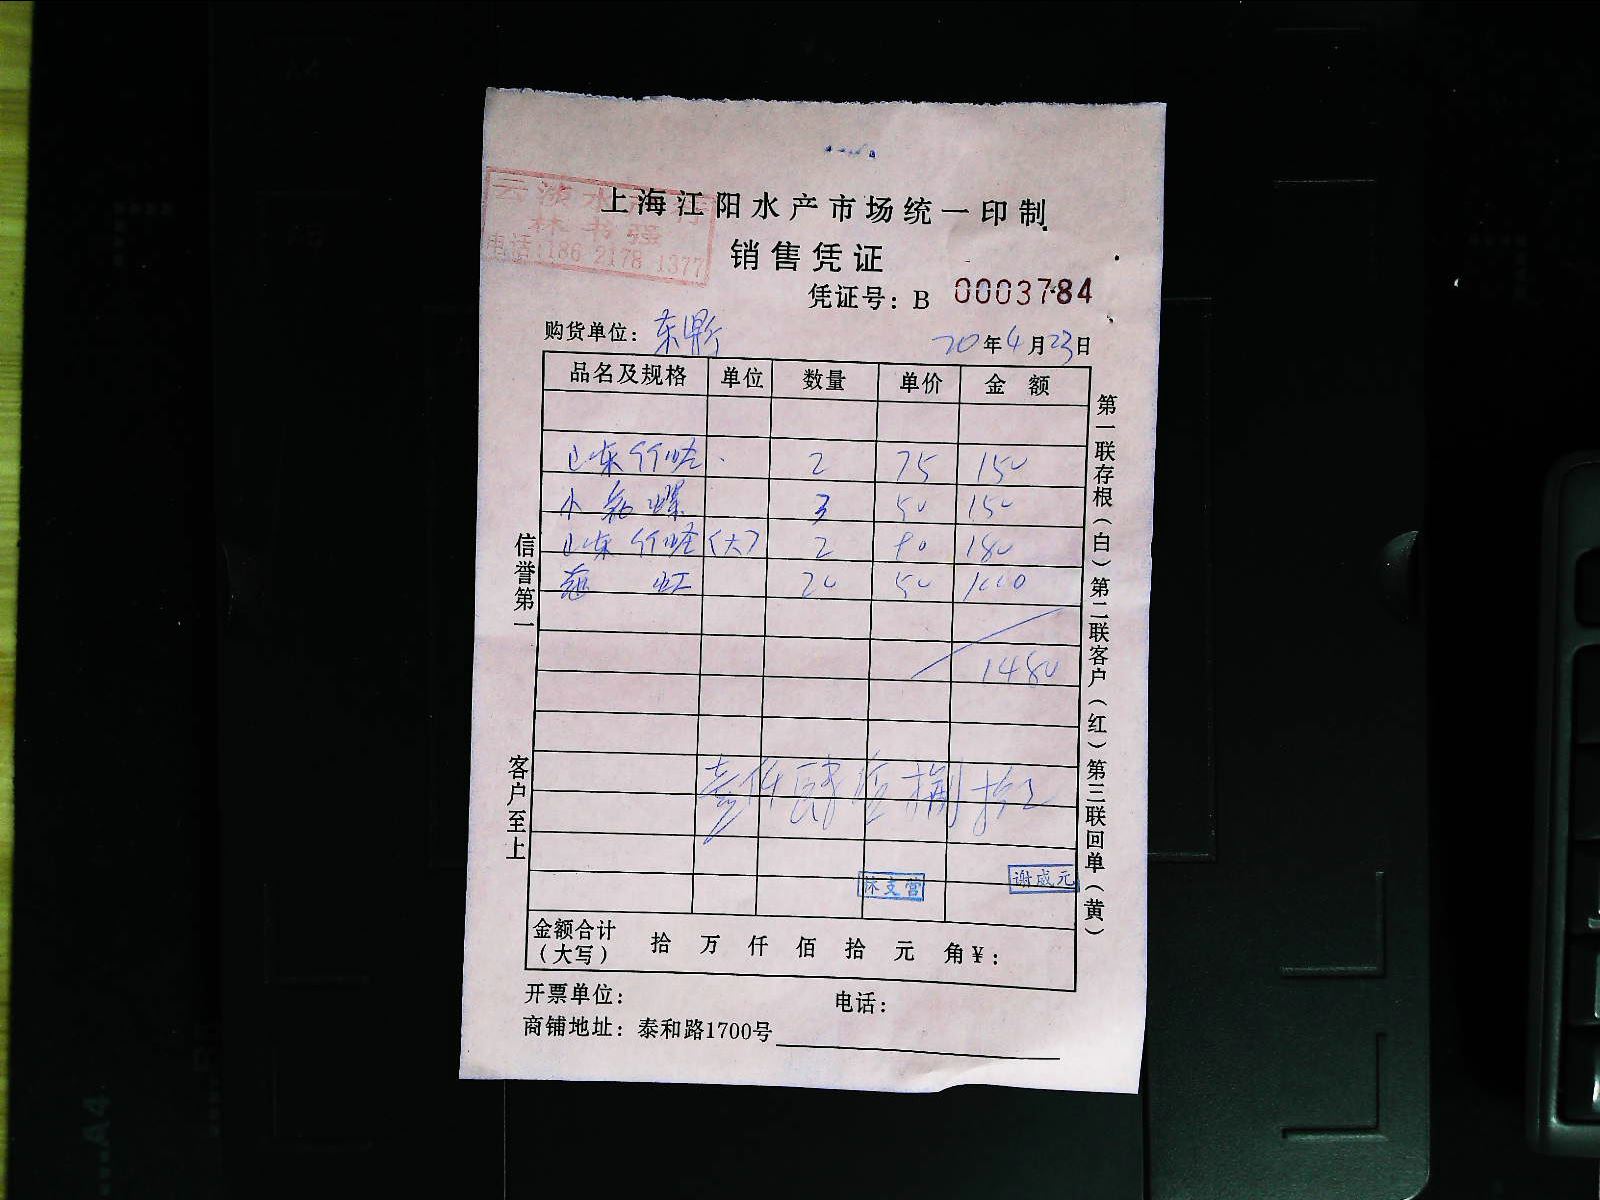 上海江阳水产市场统一印制
云波水产行
林书强
电话:186 2178 1377
销售凭证
凭证号：B 0003784
购货单位：东鼎行
20年4月23日
品名及规格 单位 数量 单价 金额
山东竹蛏 2 75 150
小 螺 3 50 150
山东竹蛏(大) 2 90 180
虹 20 50 1000
1480
壹仟肆佰捌拾元
谢咸元
金额合计（大写） 拾 万 仟 佰 拾 元 角￥：
开票单位： 电话：
商铺地址：泰和路1700号
信誉第一 客户至上
第一联存根（白）第二联客户（红）第三联回单（黄）